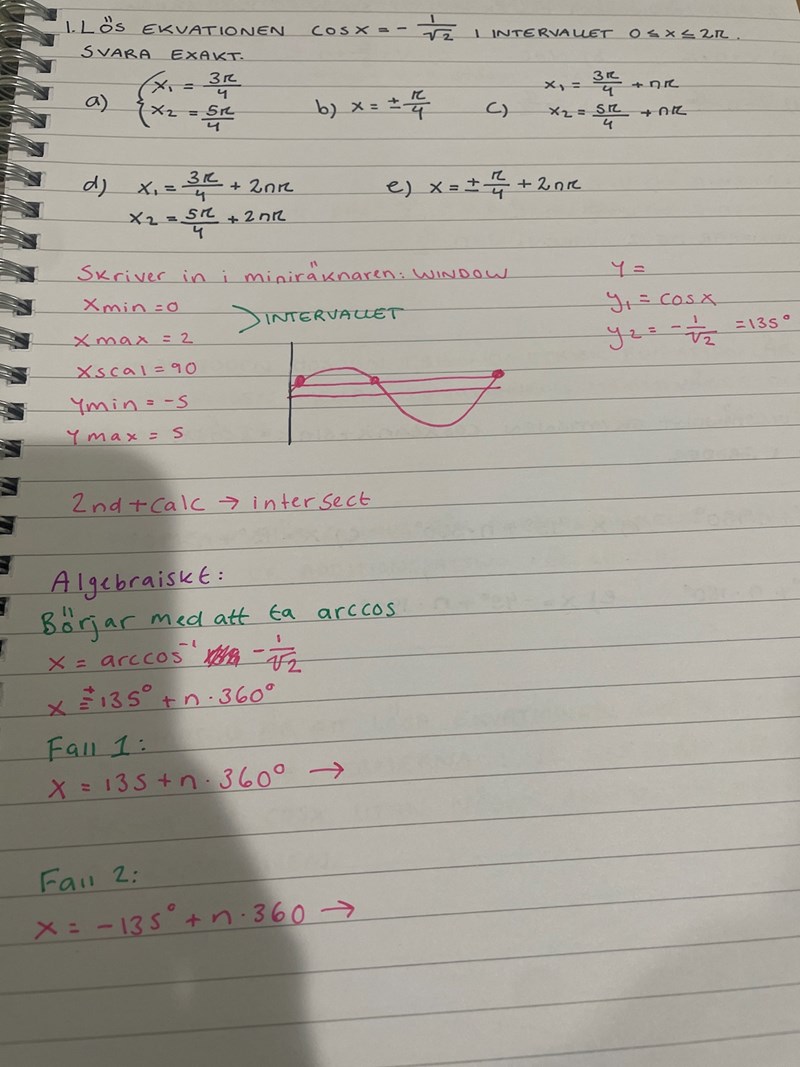 1. LÖS EKVATIONEN COSX = - 1/√2 I INTERVALLET 0 ≤ x ≤ 2π.
SVARA EXAKT.
a) { x₁ = 3π/4 x₂ = 5π/4 b) x = ± π/4 c) x₁ = 3π/4 + nπ x₂ = 5π/4 + nπ
d) x₁ = 3π/4 + 2nπ e) x = ± π/4 + 2nπ
x₂ = 5π/4 + 2nπ
Skriver in i miniräknaren: WINDOW Y =
Xmin = 0 > INTERVALLET y₁ = cosx
Xmax = 2 y₂ = - 1/√2 = 135°
Xscal = 90
Ymin = -5
Ymax = 5
2nd + calc → intersect
Algebraiskt:
Börjar med att ta arccos
x = arccos⁻¹ - 1/√2
x = ± 135° + n · 360°
Fall 1:
x = 135 + n · 360° →
Fall 2:
x = -135° + n · 360 →